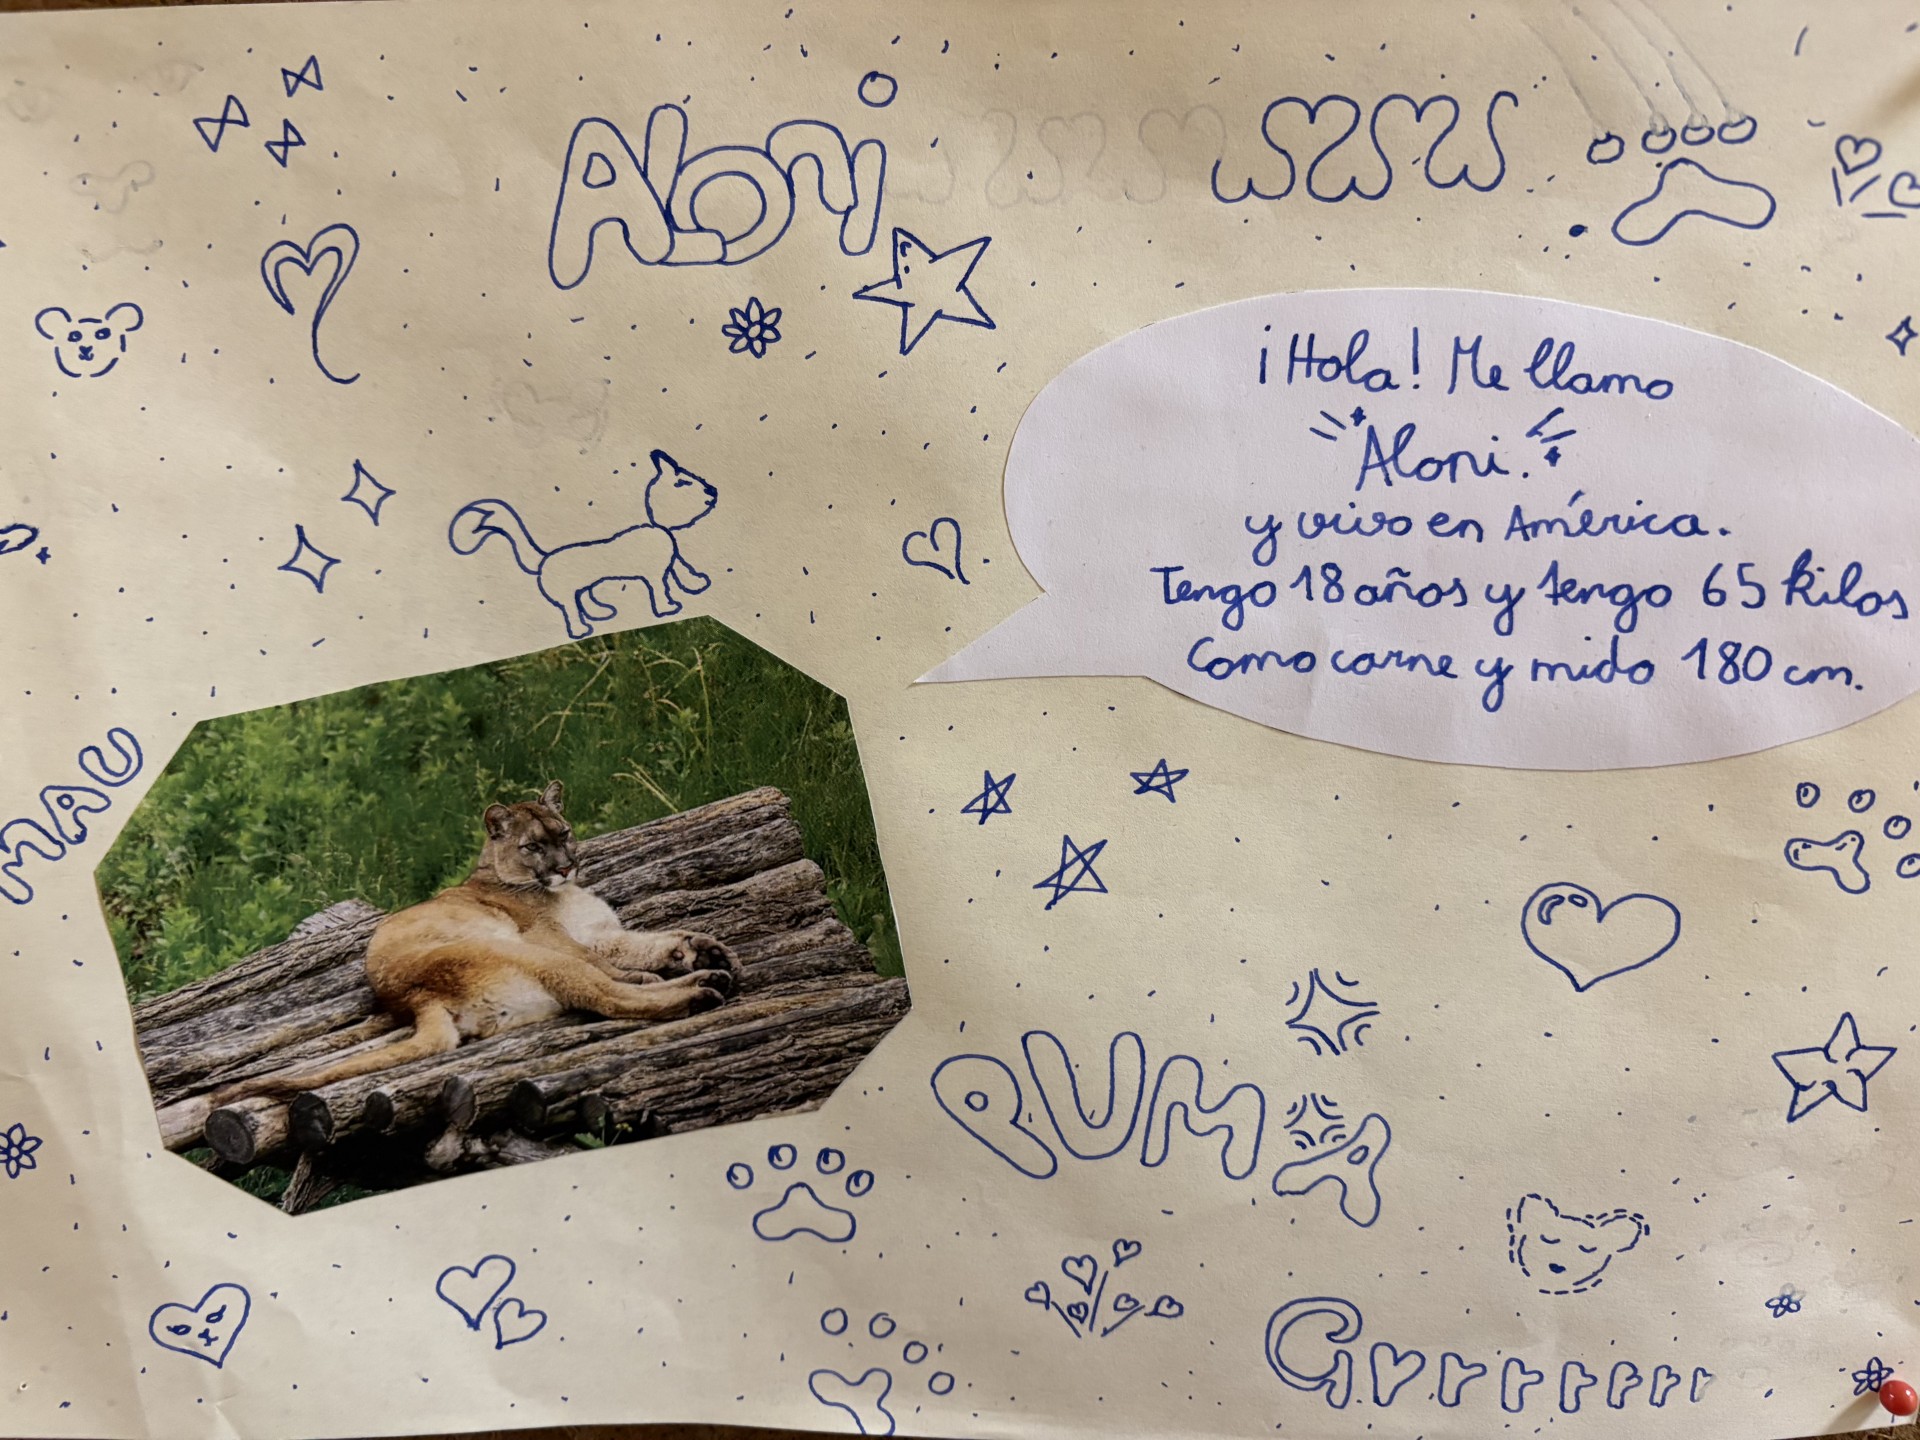 Aloni
¡Hola! Me llamo
Aloni.
y vivo en América.
Tengo 18 años y tengo 65 kilos
Como carne y mido 180 cm.
MAU
PUMA
Grrrrrrrr